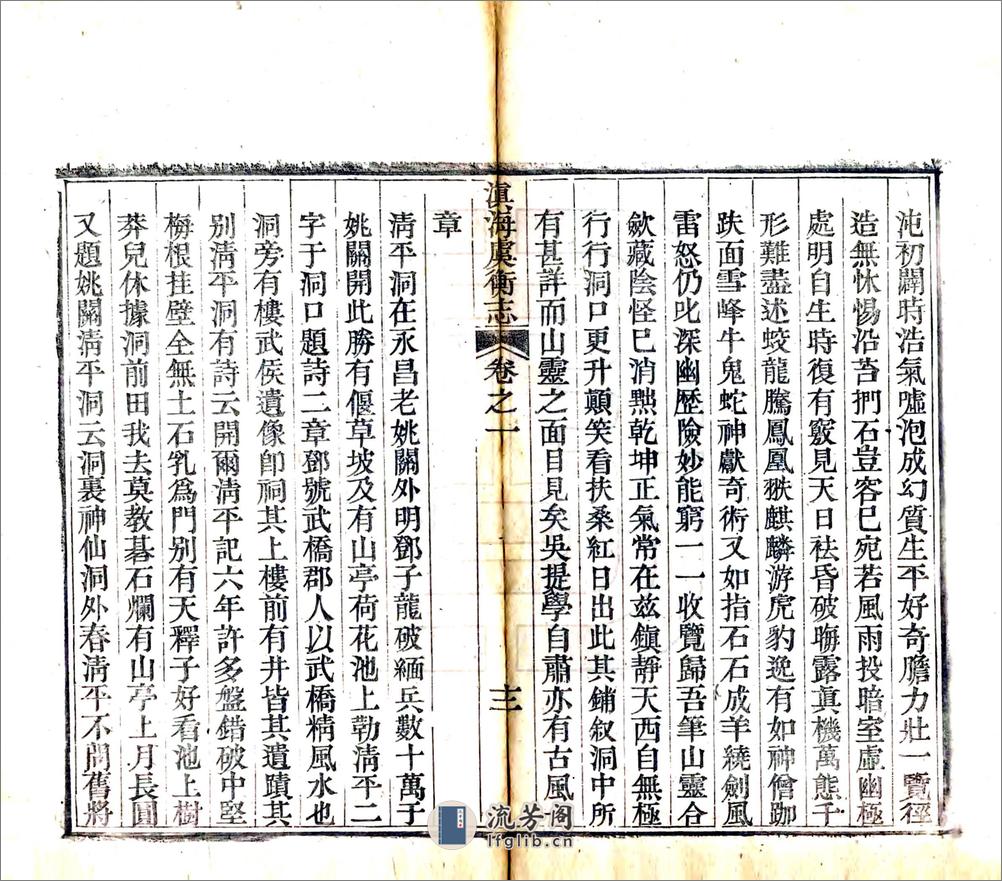 沌初闢時浩氣噓泡成幻質生平好奇膽力壯一覽徑
造無怵惕沿苔捫石豈容已宛若風雨投暗室虛幽極
處明自生時復有竅見天日祛昏破聯露眞機萬態千
形難盡述蛟龍騰鳳凰翐麒麟游虎豹逸有如神僧跏
趺面雪峰牛鬼蛇神獻奇術又如指石石成羊繞劍風
雷怒仍叱深幽歷險妙能窮一一收覽歸吾筆山靈合
歛藏陰怪巳消黙乾坤正氣常在兹鎭靜天西自無極
行行洞口更升顛笑看扶桑紅日出此其鋪叙洞中所
有甚詳而山靈之面目見矣吳提學自肅亦有古風一
章
滇海虞衡志
卷之一
淸平洞在永昌老姚關外明鄧子龍破緬兵數十萬于
姚關開此勝有偃草坡及有山亭荷花池上勒淸平二
字于洞口題詩二章鄧號武橋郡人以武橋精風水也
洞旁有樓武侯遺像卽祠其上樓前有井皆其遺蹟其
别淸平洞有詩云開爾淸平記六年許多盤錯破中堅
梅根挂壁全無土石乳爲門别有天釋子好看池上樹
莽兒休據洞前田我去莫教碁石爛有山亭上月長圓
又題姚關淸平洞云洞裏神仙洞外春淸平不問舊將
流芳阁
lfglib.cn